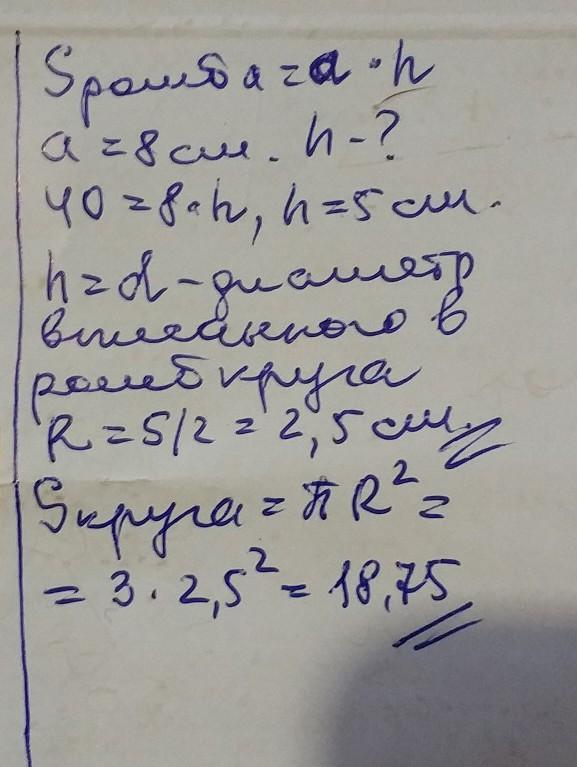 Sромба = a · h
a = 8 см. h - ?
40 = 8 · h, h = 5 см.
h = d - диаметр
вписанного в
ромб круга
R = 5/2 = 2,5 см.
Sкруга = πR² =
= 3 · 2,5² = 18,75